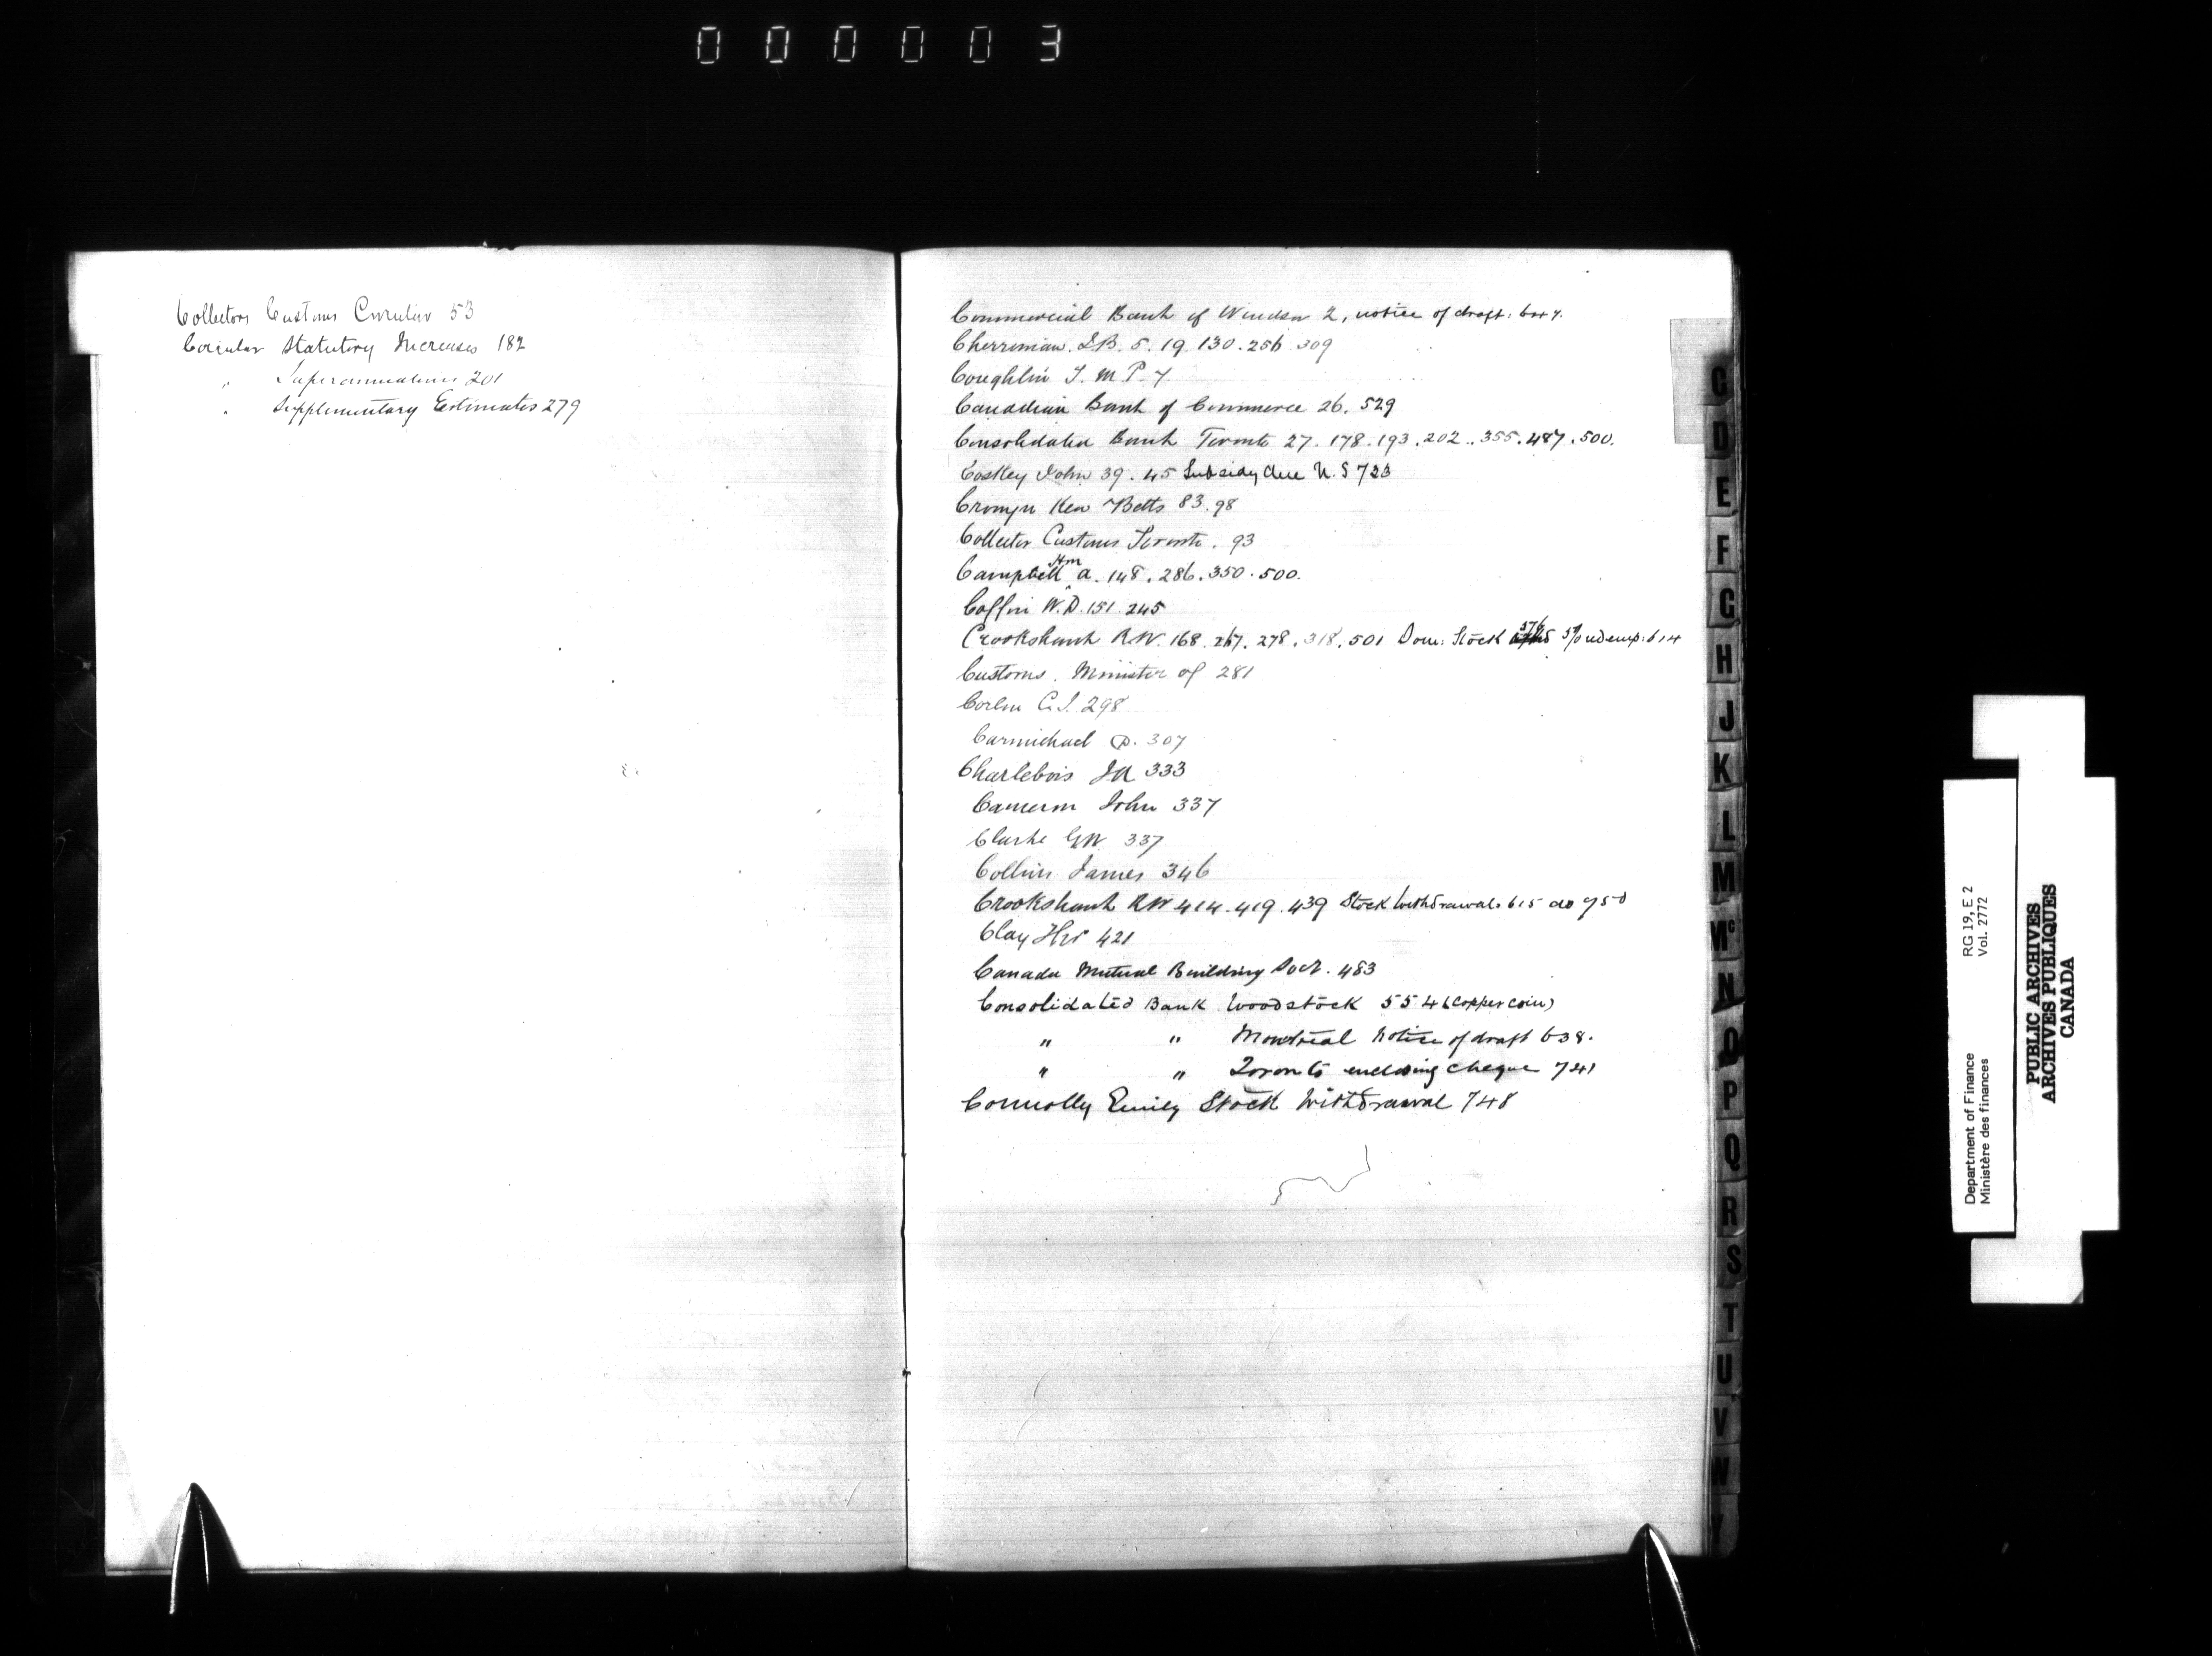 000003
Collectors Customs Circular 53
Circular Statutory Increases 182
" Superannuations 201
" Supplementary Estimates 279
Commercial Bank of Windsor 2, notice of draft: 6
Cherriman. J.B. 5. 19. 130. 256. 309
Coughlin T. M.P. 7
Canadian Bank of Commerce 26. 529
Consolidated Bank Toronto 27. 178. 193. 202.. 355. 487. 500.
Costley John 39. 45 Subsidy due N.S 723
Cronyn Kew Betts 83. 98
Collector Customs Toronto. 93
Campbell Hon A. 148. 286. 350. 500.
Coffin W.D. 151. 245
Crookshank R.W. 168. 267. 278. 318. 501 Dom: Stock 576 5% redemp: 614
Customs. Minister of 281
C.J. 298
Carmichael D. 307
Charlebois JA 333
Cameron John 337
Clarke GW 337
Collins James 346
Crookshank RW 414. 419. 439 Stock Withdrawals 615 do 750
Clay Hy 421
Canada Mutual Building Socy. 483
Consolidated Bank Woodstock 554 (copper coin)
" " Montreal Notice of draft 638.
" " Toronto enclosing cheque 741
Connolly Emily Stock Withdrawal 748
C
D
E
F
G
H
J
K
L
M
Mc
N
O
P
Q
R
S
T
U
V
W
Y
Department of Finance RG 19, E 2
Ministère des finances Vol. 2772
PUBLIC ARCHIVES
ARCHIVES PUBLIQUES
CANADA